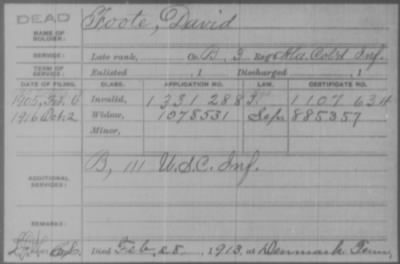 DEAD
Foote, David
NAME OF SOLDIER:
SERVICE: Late rank, Co. B, 3 Reg't Ala. Col'd Inf.
TERM OF SERVICE: Enlisted , 1 Discharged , 1
DATE OF FILING. CLASS. APPLICATION NO. LAW. CERTIFICATE NO.
1905, Feb. 6 Invalid, 1331288 1107634
1916 Oct. 2 Widow, 1078531 885357
Minor,
B, 111 U.S.C. Inf.
ADDITIONAL SERVICES:
REMARKS:
Died Feb. 25, 1913, at Denmark Tenn.